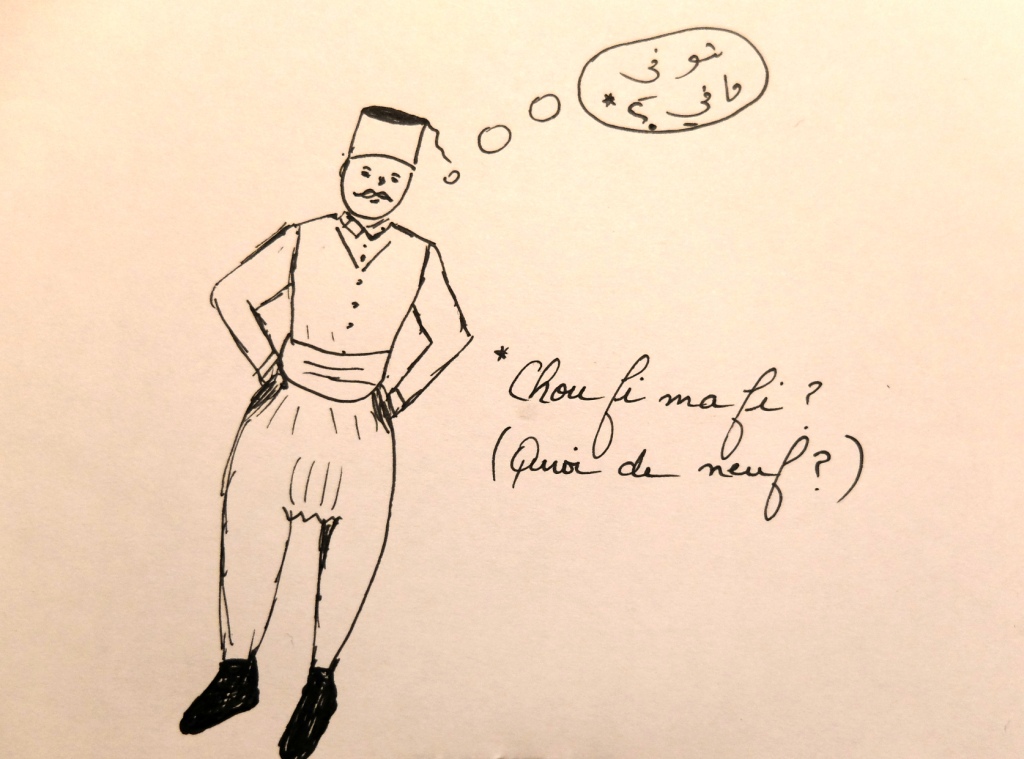 شو في
ما في ؟ *
* Chou fi ma fi ?
(Quoi de neuf ?)